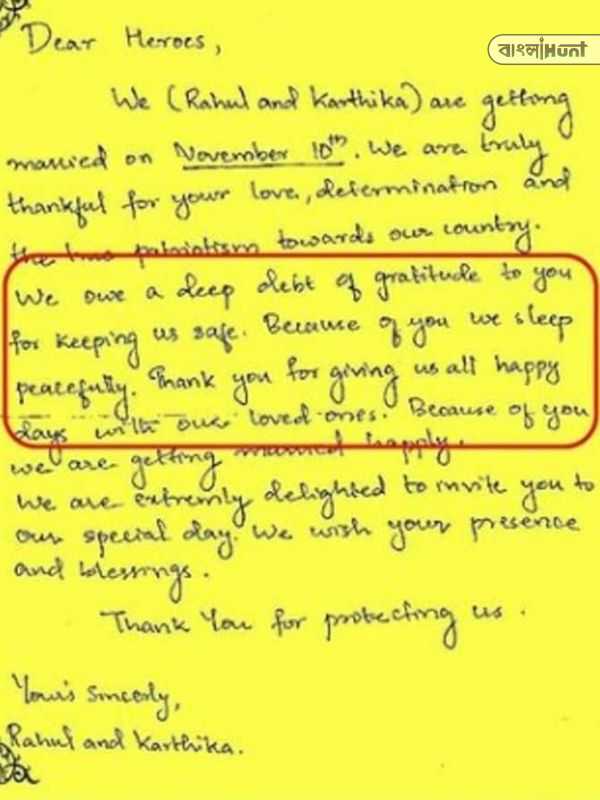 বাংলাHunt
Dear Heroes,
We (Rahul and Karthika) are getting
married on November 10th. We are truly
thankful for your love, determination and
the true patriotism towards our country.
We owe a deep debt of gratitude to you
for keeping us safe. Because of you we sleep
peacefully. Thank you for giving us all happy
days with our loved ones. Because of you
we are getting married happly.
We are extremly delighted to invite you to
our special day. We wish your presence
and blessings.
Thank You for protecting us.
Your's Sincerly,
Rahul and Karthika.